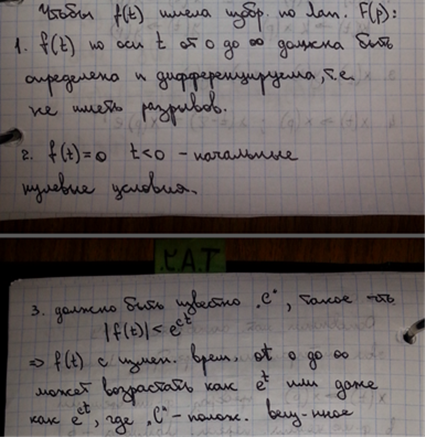 Чтобы f(t) имела изобр. по Лап. F(p):
1. f(t) по оси t от 0 до ∞ должна быть
определена и дифференцируема, т.е.
не иметь разрывов.
2. f(t)=0 t<0 - начальные
нулевые условия.
Т.А.У.
3. должно быть известно "C", такое что
|f(t)|<e^ct
⇒ f(t) с измен. врем. от 0 до ∞
может возрастать как e^t или даже
как e^ct, где "C" - полож. вещ-нное